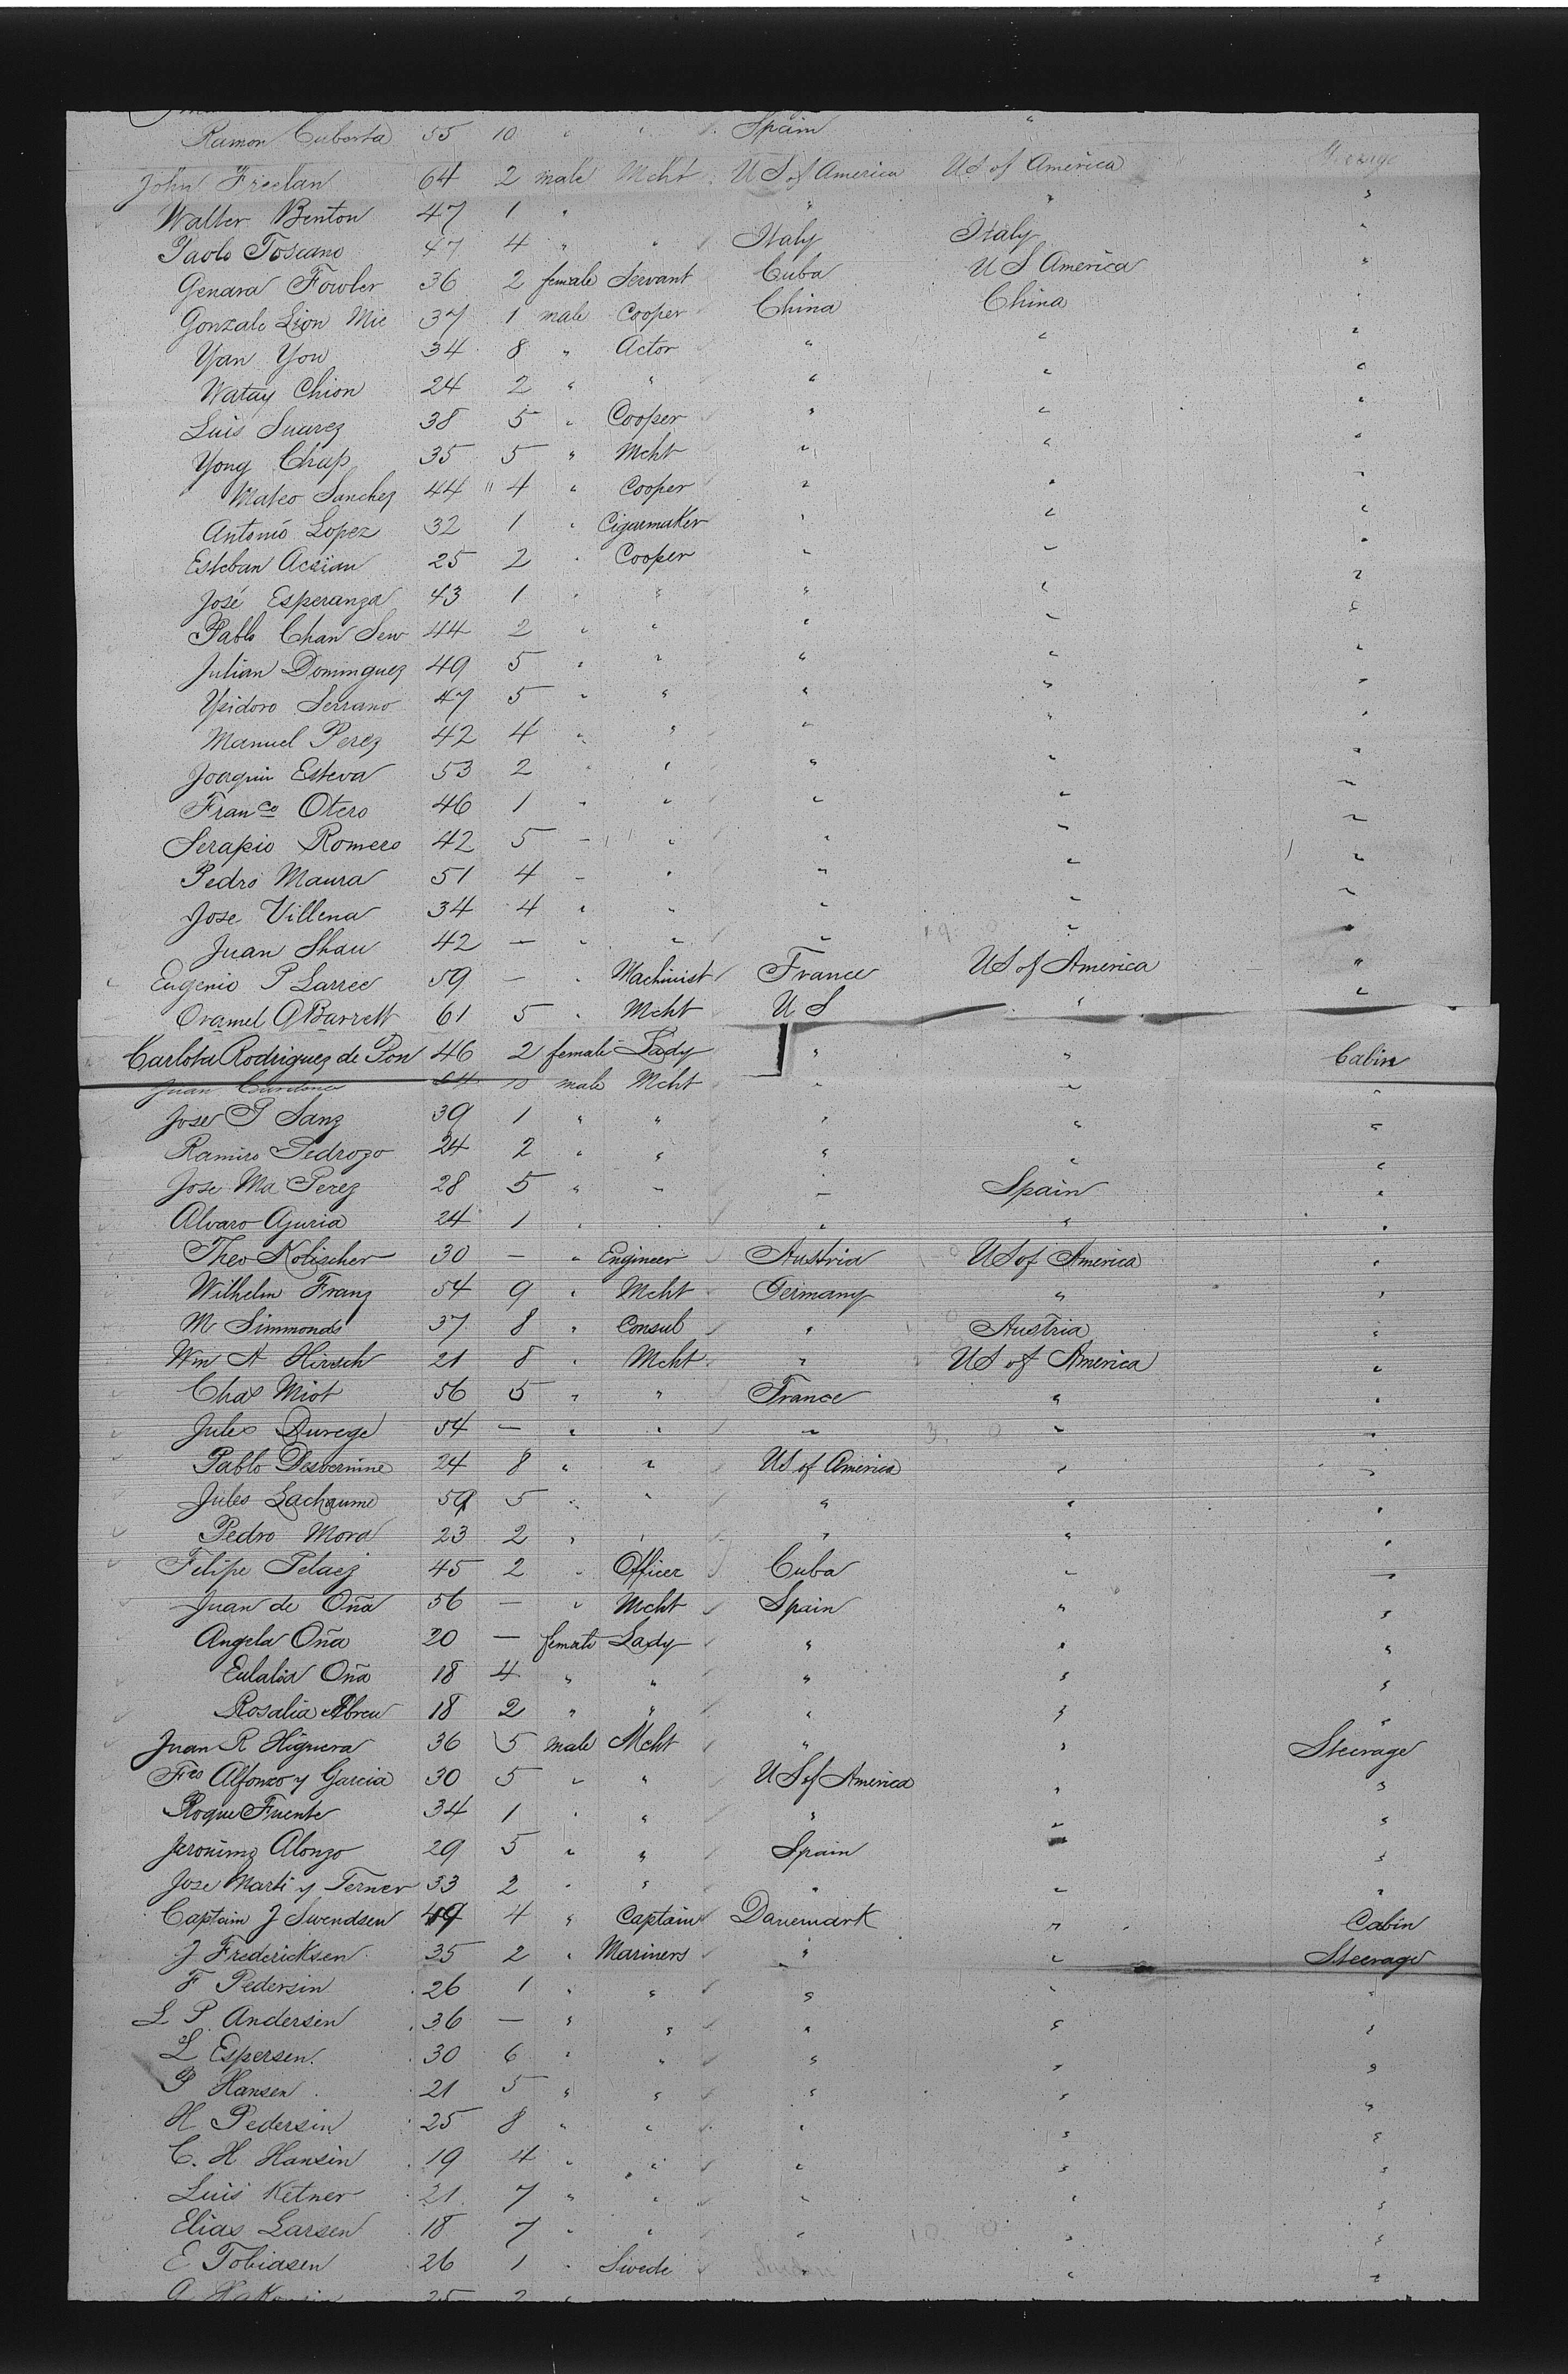 Ramon Cuberta 55 10 " " Spain "
John Freelan 64 2 male Mcht US of America US of America Steerage
Walter Benton 47 1 " " " "
Paolo Toscano 47 4 " " Italy Italy "
Genara Fowler 36 2 female Servant Cuba U S America "
Gonzalo Lion Mic 37 1 male Cooper China China "
Yan You 34 8 " Actor " " "
Watay Chion 24 2 " " " " "
Luis Suarez 38 5 " Cooper " " "
Yong Chap 35 5 " Mcht " " "
Mateo Sanchez 44 " 4 " Cooper " " "
Antonio Lopez 32 1 " Cigarmaker " " "
Esteban 25 2 " Cooper " " "
José Esperanza 43 1 " " " " "
Pablo Chan Sew 44 2 " " " " "
Julian Dominguez 49 5 " " " " "
Ysidoro Serrano 47 5 " " " " "
Manuel Perez 42 4 " " " " "
Joaquin Esteva 53 2 " " " " "
Franco Otero 46 1 " " " " "
Serapio Romero 42 5 " " " " "
Pedro Maura 51 4 " " " " "
Jose Villena 34 4 " " " " "
Juan Shau 42 — " " " " "
Eugenio P Larree 59 — " Machinist France US of America "
Oramel G Barrett 61 5 " Mcht U S " "
Carlota Rodriguez de Pon 46 2 female Lady " " Cabin
Juan Cardenas 64 10 male Mcht " " "
Jose G Sanz 39 1 " " " " "
Ramiro Pedrozo 24 2 " " " " "
Jose Ma Perez 28 5 " " " Spain "
Alvaro Aguria 24 1 " " " " "
Theo Kolischer 30 — " Engineer Austria US of America "
Wilhelm Franz 54 9 " Mcht Germany " "
M Simmonds 37 8 " Consul " Austria "
Wm A Hirsch 21 8 " Mcht " US of America "
Chas Miot 56 5 " " France " "
Jules Durege 54 — " " " " "
Pablo Desvernine 24 8 " " US of America " "
Jules Lachaume 59 5 " " " " "
Pedro Mora 23 2 " " " " "
Felipe Pelaez 45 2 " Officer Cuba " "
Juan de Oña 56 — " Mcht Spain " "
Angela Oña 20 — female Lady " " "
Eulalia Oña 18 4 " " " " "
Rosalia Abreu 18 2 " " " " "
Juan R Higuera 36 5 male Mcht " " Steerage
Fco Alfonzo y Garcia 30 5 " " US of America " "
Roque Fuente 34 1 " " " " "
Jeronimo Alonzo 29 5 " " Spain " "
Jose Marti y Ferner 33 2 " " " " "
Captain J Swendsen 49 4 " Captain Danemark " Cabin
J Fredericksen 35 2 " Mariners " " Steerage
F Pedersin 26 1 " " " " "
L P. Andersen 36 — " " " " "
L Espersen. 30 6 " " " " "
P Hansen 21 5 " " " " "
H Pedersin 25 8 " " " " "
C. H Hansin 19 4 " " " " "
Luis Ketner 21 7 " " " " "
Elias Larsen 18 7 " " " " "
E Tobiasen 26 1 " Swede " "
25 2 "